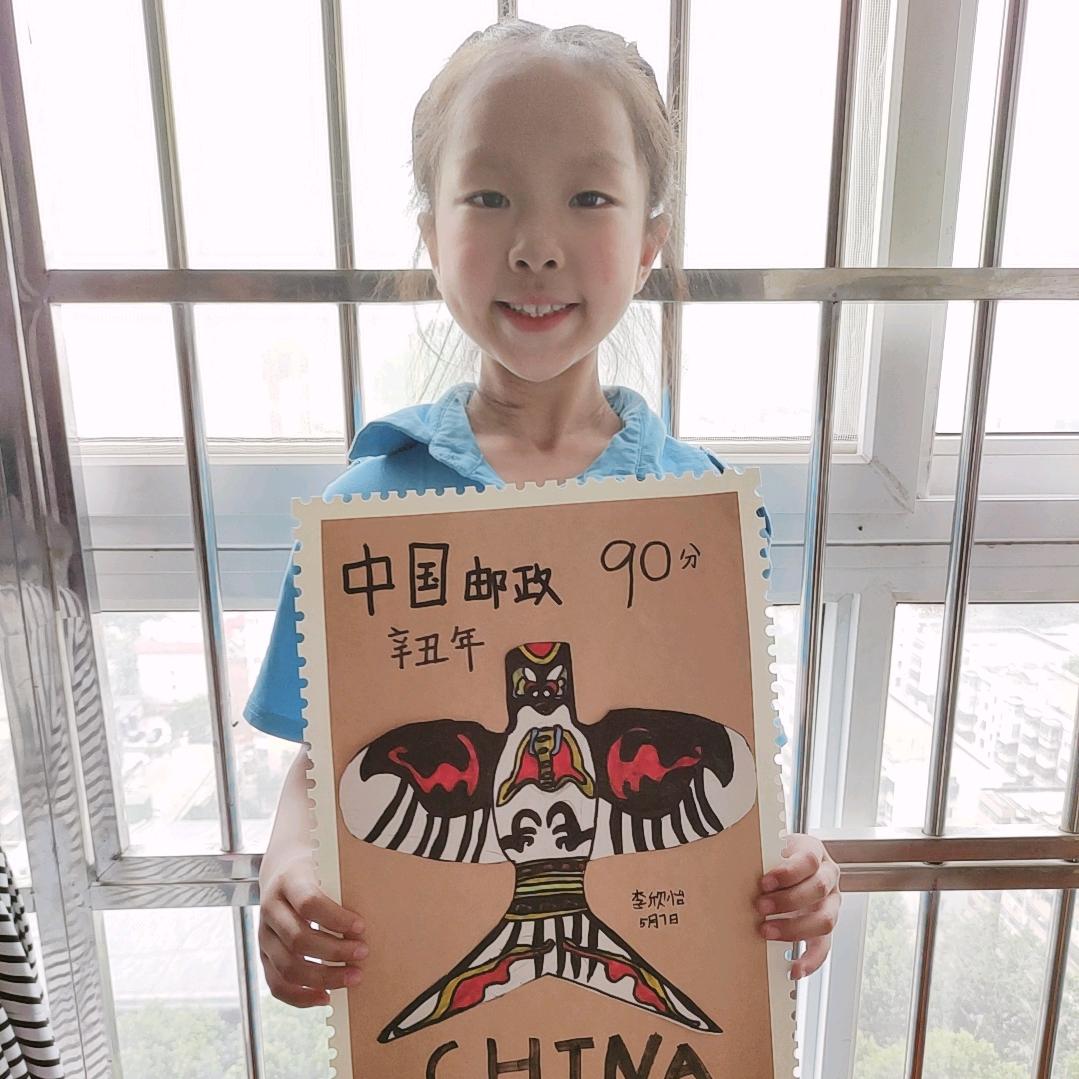 中国邮政 90分
辛丑年
李欣怡
5月7日
CHINA